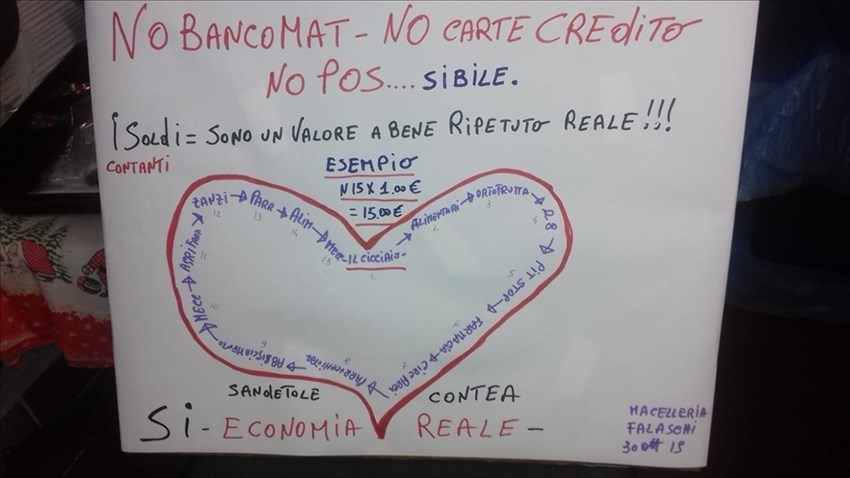 NO BANCOMAT - NO CARTE CREDITO
NO POS.... SIBILE.
I SOLDI = SONO UN VALORE A BENE RIPETUTO REALE!!!
CONTANTI
ESEMPIO
N 15 X 1.00 €
= 15.00 €
IL CICCIAIO
ALIMENTARI
ORTOFRUTTA
PIT STOP
FARMACIA
ZANZI
PARR
ALIM
SANDETOLE
CONTEA
SI - ECONOMIA REALE -
MACELLERIA
FALASCHI
30 Ott 19